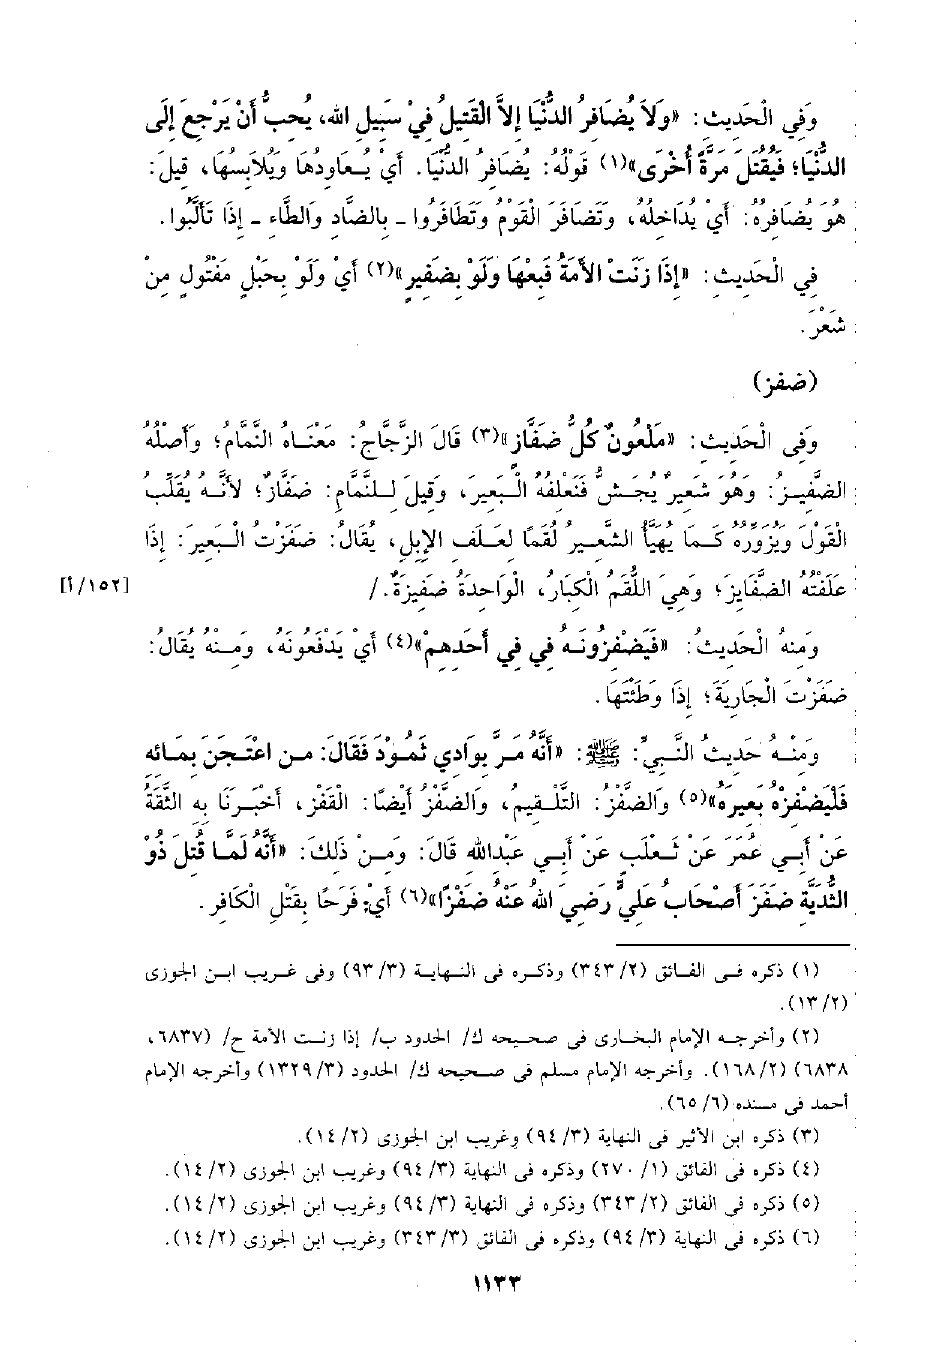 وَفِي الْحَدِيثِ: «وَلَا يُضَافِرُ الدُّنْيَا إِلاَّ الْقَتِيلُ فِيْ سَبِيلِ اللهِ، يُحِبُّ أَنْ يَرْجِعَ إِلَى
الدُّنْيَا؛ فَيُقْتَلَ مَرَّةً أُخْرَى»(١) قَوْلُهُ: يُضَافِرُ الدُّنْيَا. أَيْ يُعَاوِدُهَا وَيُلَابِسُهَا، قِيلَ:
هُوَ يُضَافِرُهُ: أَيْ يُدَاخِلُهُ، وَتَضَافَرَ الْقَوْمُ وَتَظَافَرُوا ـ بِالضَّادِ وَالظَّاءِ ـ إِذَا تَأَلَّبُوا.
فِي الْحَدِيثِ: «إِذَا زَنَتِ الأَمَةُ فَبِعْهَا وَلَوْ بِضَفِيرٍ»(٢) أَيْ وَلَوْ بِحَبْلٍ مَفْتُولٍ مِنْ
شَعْرٍ.
(ضفز)
وَفِى الْحَدِيثِ: «مَلْعُونٌ كُلُّ ضَفَّازٍ»(٣) قَالَ الزَّجَّاجُ: مَعْنَاهُ النَّمَّامُ؛ وَأَصْلُهُ
الضَّفِيزُ: وَهُوَ شَعِيرٌ يُجَشُّ فَتَعْلِفُهُ الْبَعِيرَ، وَقِيلَ لِلنَّمَّامِ: ضَفَّازٌ؛ لأَنَّهُ يُقَلِّبُ
الْقَوْلَ وَيُزَوِّرُهُ كَمَا يُهَيَّأُ الشَّعِيرُ لُقَمًا لِعَلَفِ الإِبِلِ، يُقَالُ: ضَفَزْتُ الْبَعِيرَ: إِذَا
عَلَفْتُهُ الضَّفَايِزَ؛ وَهِيَ اللُّقَمُ الْكِبَارُ، الْوَاحِدَةُ ضَفِيزَةٌ./ [١٥٢/أ]
وَمِنْهُ الْحَدِيثُ: «فَيَضْفِزُونَهُ فِي فِي أَحَدِهِمْ»(٤) أَيْ يَدْفَعُونَهُ، وَمِنْهُ يُقَالُ:
ضَفَزْتُ الْجَارِيَةَ؛ إِذَا وَطَئْتَهَا.
وَمِنْهُ حَدِيثُ النَّبِيِّ: ﷺ: «أَنَّهُ مَرَّ بِوَادِي ثَمُوْدَ فَقَالَ: مَنِ اعْتَجَنَ بِمَائِهِ
فَلْيَضْفِزْهُ بَعِيرَهُ»(٥) وَالضَّفْزُ: التَّلْقِيمُ، وَالضَّفْزُ أَيْضًا: القَفْزُ، أَخْبَرَنَا بِهِ الثِّقَةُ
عَنْ أَبِي عُمَرَ عَنْ ثَعْلَبٍ عَنْ أَبِي عَبْدِاللهِ قَالَ: وَمِنْ ذَلِكَ: «أَنَّهُ لَمَّا قُتِلَ ذُو
الثُّدَيَّةِ ضَفَزَ أَصْحَابُ عَلِيٍّ رَضِيَ اللهُ عَنْهُ ضَفْزًا»(٦) أَيْ: فَرَحًا بِقَتْلِ الْكَافِرِ.
(١) ذكره فى الفائق (٢/ ٣٤٣) وذكره فى النهاية (٣/ ٩٣) وفى غريب ابن الجوزى
(٢/ ١٣).
(٢) وأخرجه الإمام البخارى فى صحيحه ك/ الحدود ب/ إذا زنت الأمة ح/ (٦٨٣٧،
٦٨٣٨) (٢/ ١٦٨). وأخرجه الإمام مسلم فى صحيحه ك/ الحدود (٣/ ١٣٢٩) وأخرجه الإمام
أحمد فى مسنده (٦/ ٦٥).
(٣) ذكره ابن الأثير فى النهاية (٣/ ٩٤) وغريب ابن الجوزى (٢/ ١٤).
(٤) ذكره فى الفائق (١/ ٢٧٠) وذكره فى النهاية (٣/ ٩٤) وغريب ابن الجوزى (٢/ ١٤).
(٥) ذكره فى الفائق (٢/ ٣٤٣) وذكره فى النهاية (٣/ ٩٤) وغريب ابن الجوزى (٢/ ١٤).
(٦) ذكره فى النهاية (٣/ ٩٤) وذكره فى الفائق (٣/ ٣٤٣) وغريب ابن الجوزى (٢/ ١٤).
١١٣٣